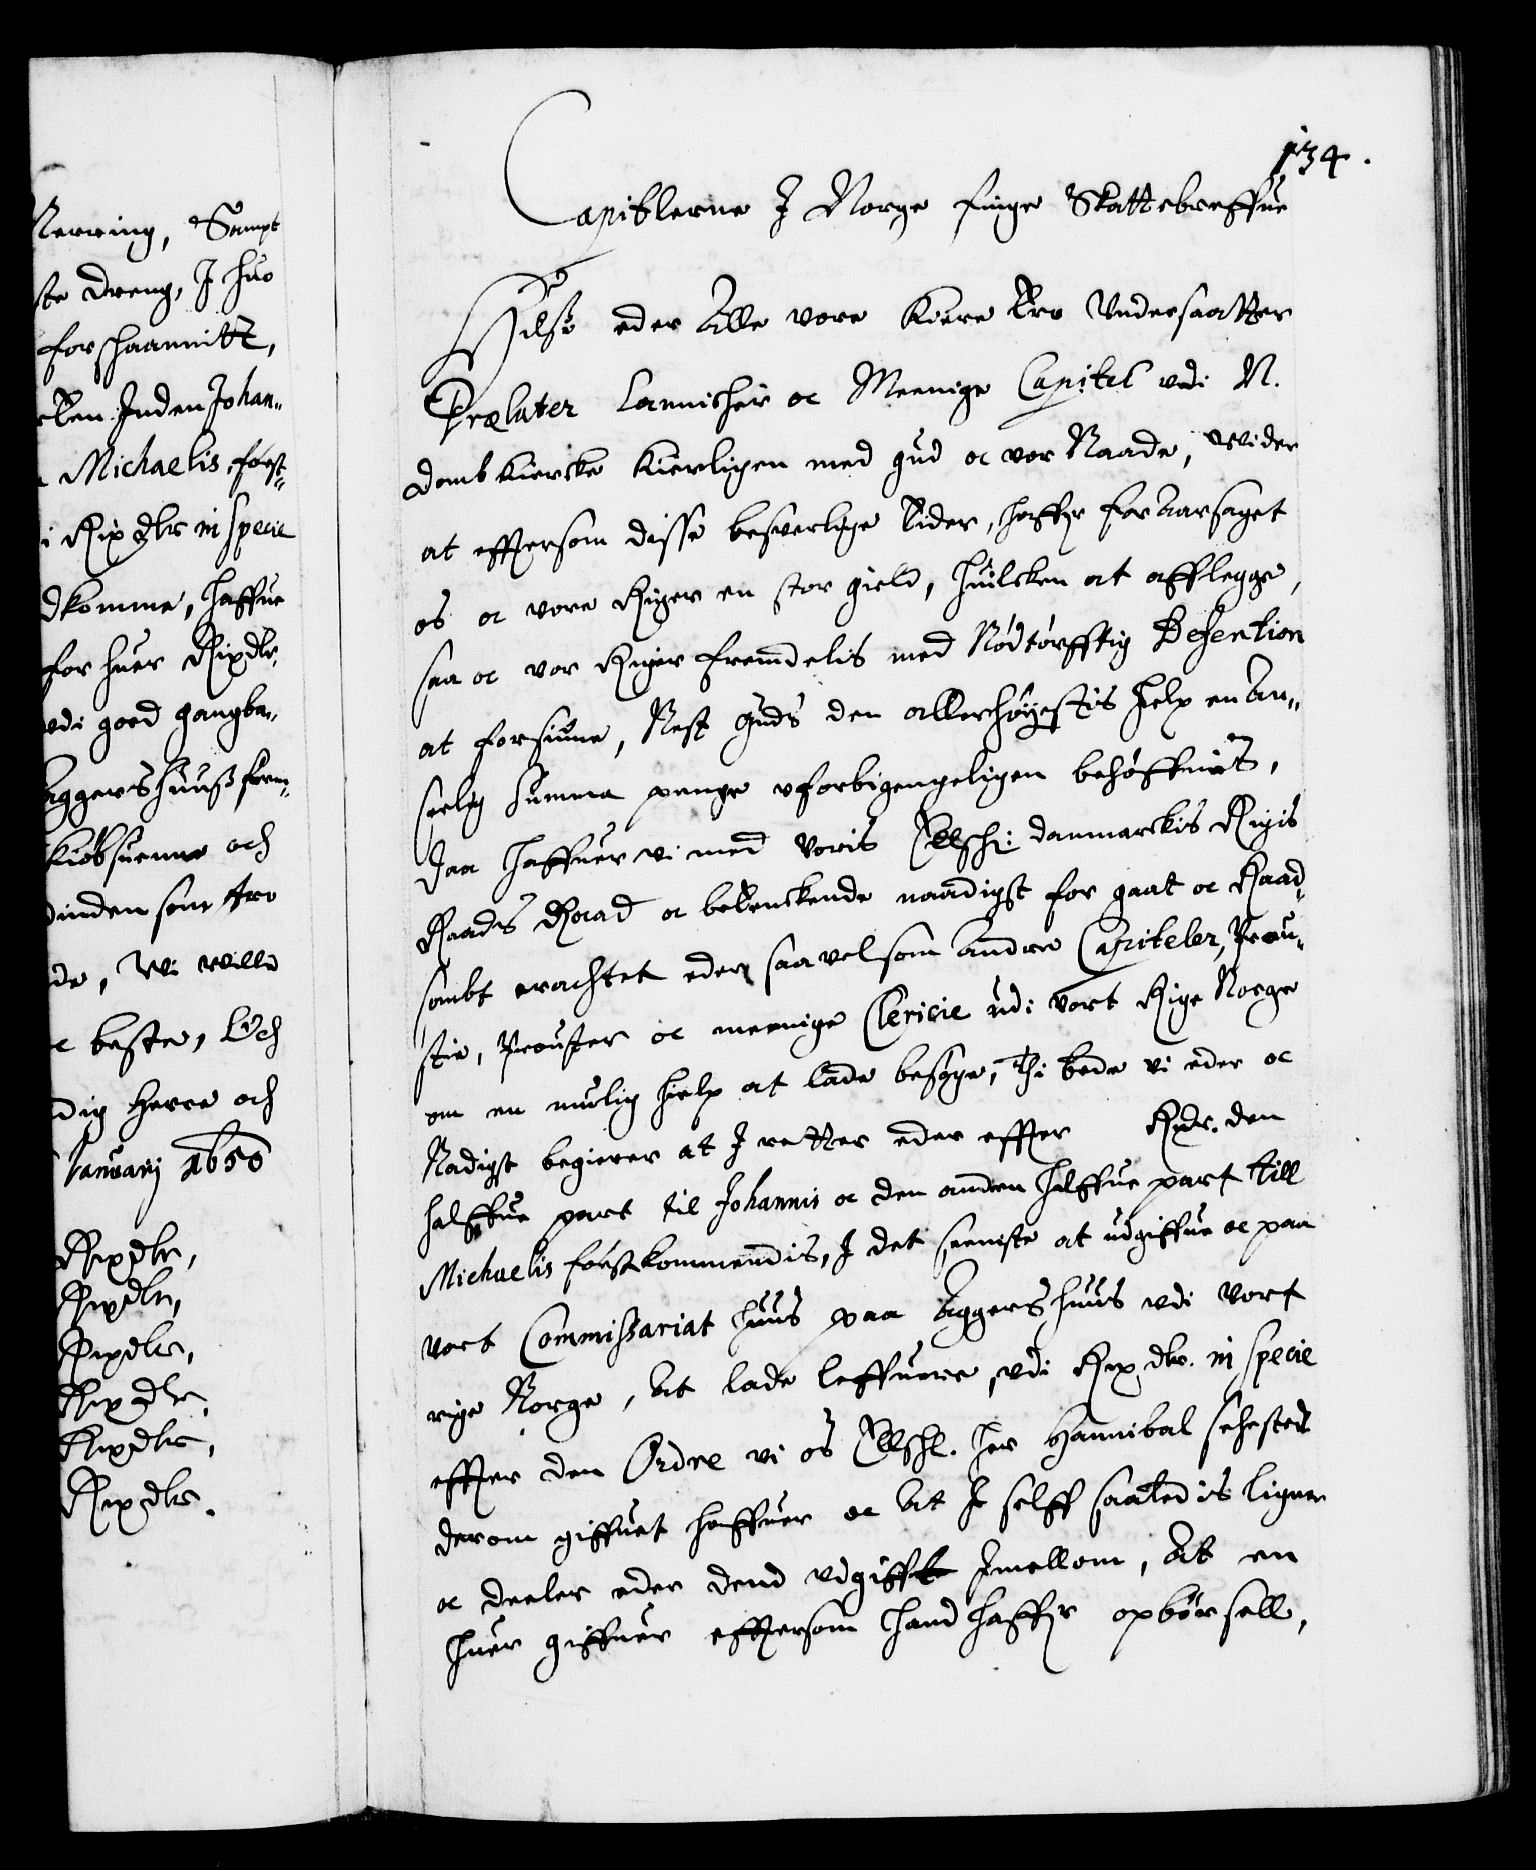 Nerering, Sampt
ste dreng, J huo
forschaannitt,
Inden Johan-
Michaelis først-
i Rixdlr in specie
dkomme, haffue
for huer Rixdlr.
vdi goed gangba-
Aggershuuß frem-
Kiøbsuenne och
inden som tro
de, Wi wille
beste, Och
dig Herre och
Januarij 1650
Rixdlr,
Rixdlr,
Rixdlr,
Rixdlr,
Rixdlr,
Rixdlr.
134.
Capitlerne J Norge finge Skattebreffue
Hilse eder Alle vore Kiere Tro Vndersaatter
Prælater Cannicher oc Meenige Capitel vdi N.
Domb Kiercke Kierligen med gud oc vor Naade, Wider
at effterson disse besverlige tider, haffr foraarsaget
os oc vore Riger en stor gield, huilcken at afflegge,
saa oc vor Riger fremdelis med Nødtørfftig Defention
at forsiune, Nest Guds den allerhøyestis hielp en An-
seelig Summa penge vforbigengeligen behøffuis,
Daa haffuer vi med Voris Elschl: Danmarckis Rigis
Raads Raad oc betenckende naadigst for gaat oc Raad-
sombt erachtet eder saavelsom Andre Capiteler, Prou-
stie, Prouster oc meenige Clericie udi vort Rige Norge
om en mulig hielp at lade besøge, Thi bede vi eder oc
Nadigst begierer at J retter eder effter Rixdr. den
halffue part til Johannis oc den anden halffue part till
Michaelis førstkommendis, J det seeniste at udgiffue oc paa
vort Commissariat huus paa Aggershuus vdi vort
rige Norge, At lade leffuere, vdi Rixdlr. in specie
effter den Ordre vi os Elschl. Her Hannibal Sehested
derom giffuet haffuer oc At Ji selff saaledis ligner
oc deeler eder dend vdgifft Jmellom, At en
huer giffuer efftersom hand haffr opbørsell,